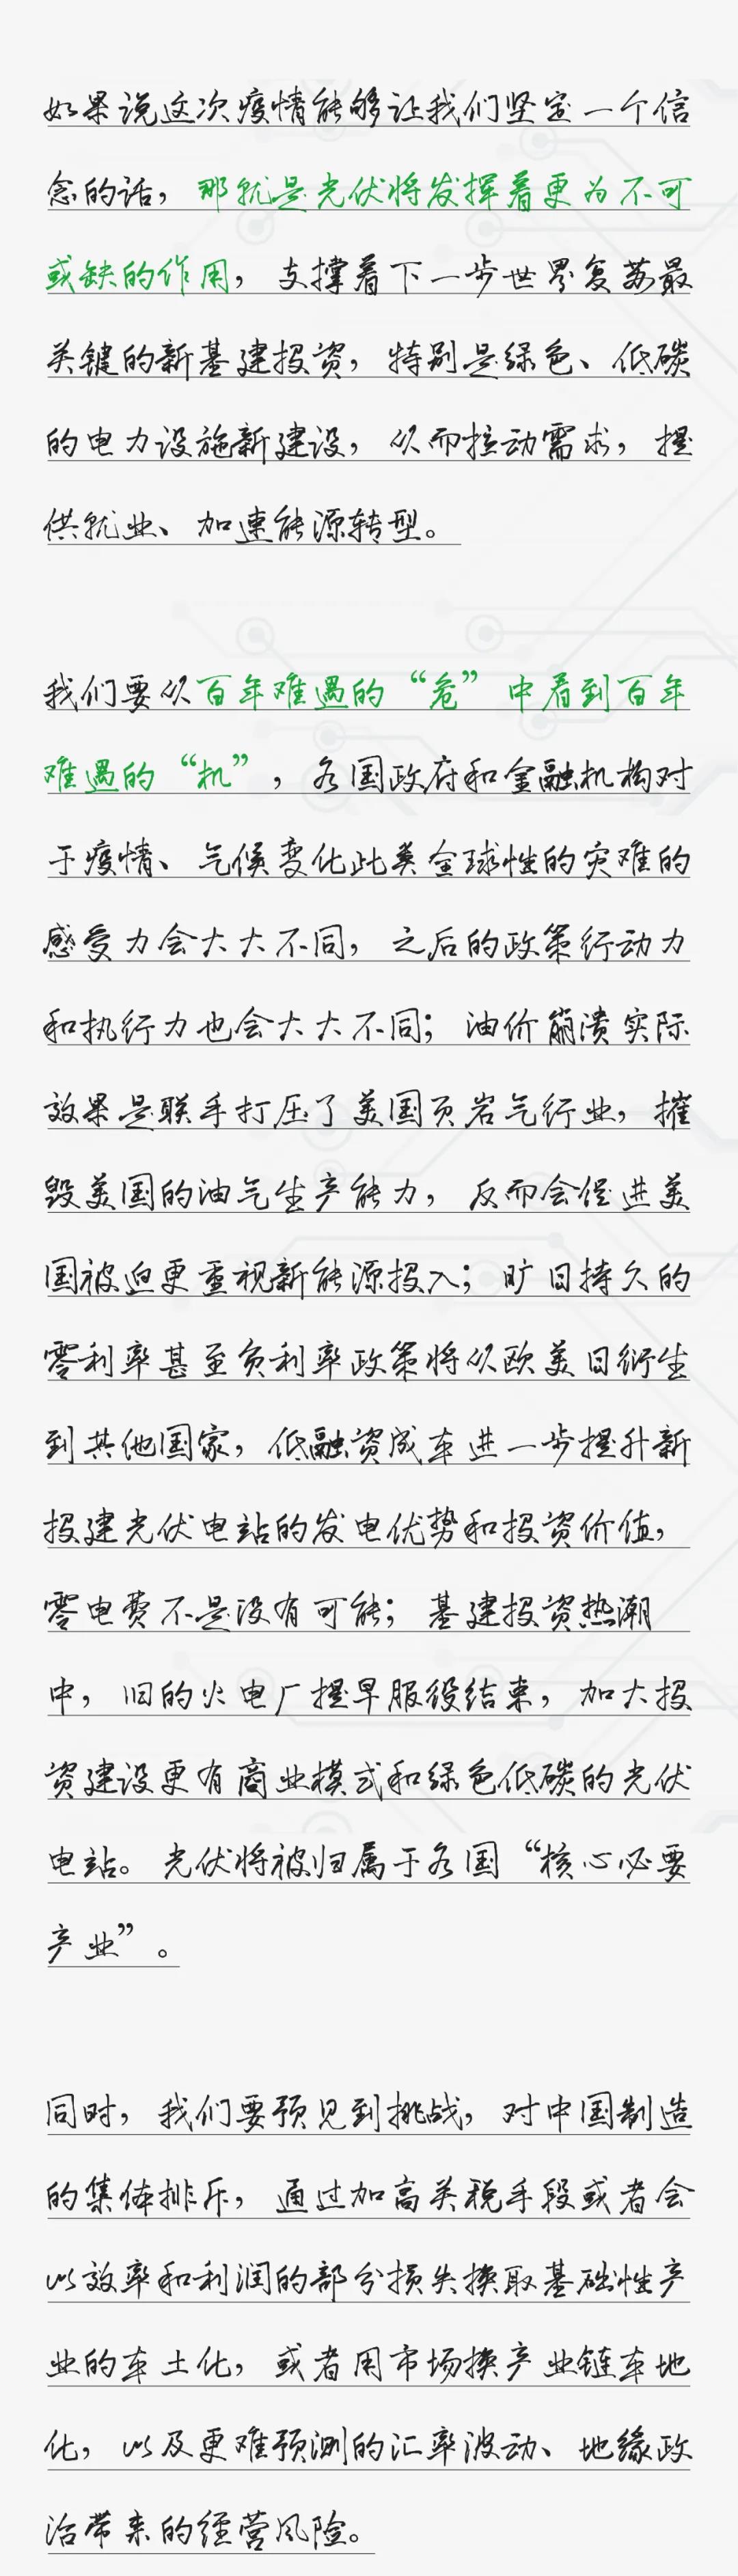 如果说这次疫情能够让我们坚定一个信
念的话，那就是光伏将发挥着更为不可
或缺的作用，支撑着下一步世界复苏最
关键的新基建投资，特别是绿色、低碳
的电力设施新建设，从而拉动需求，提
供就业、加速能源转型。
我们要从百年难遇的“危”中看到百年
难遇的“机”，各国政府和金融机构对
于疫情、气候变化此类全球性的灾难的
感受力会大大不同，之后的政策行动力
和执行力也会大大不同；油价崩溃实际
效果是联手打压了美国页岩气行业，摧
毁美国的油气生产能力，反而会促进美
国被迫更重视新能源投入；旷日持久的
零利率甚至负利率政策将从欧美日衍生
到其他国家，低融资成本进一步提升新
投建光伏电站的发电优势和投资价值，
零电费不是没有可能；基建投资热潮
中，旧的火电厂提早服役结束，加大投
资建设更有商业模式和绿色低碳的光伏
电站。光伏将被归属于各国“核心必要
产业”。
同时，我们要预见到挑战，对中国制造
的集体排斥，通过加高关税手段或者会
以效率和利润的部分损失换取基础性产
业的本土化，或者用市场换产业链本地
化，以及更难预测的汇率波动、地缘政
治带来的经营风险。